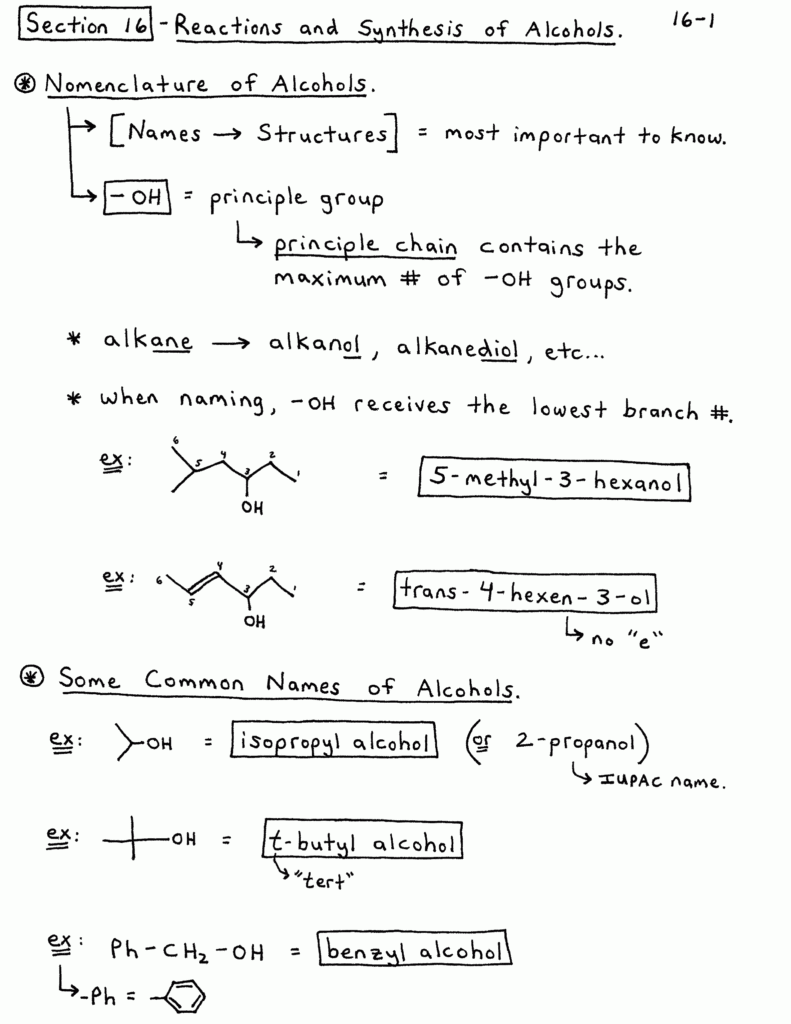 Section 16 - Reactions and Synthesis of Alcohols. 16-1
⊛ Nomenclature of Alcohols.
→ [Names → Structures] = most important to know.
→ -OH = principle group
↳ principle chain contains the
maximum # of -OH groups.
* alkane → alkanol, alkanediol, etc...
* when naming, -OH receives the lowest branch #.
ex: 6 5 4 3 2 1 OH = 5-methyl-3-hexanol
ex: 6 5 4 3 2 1 OH = trans-4-hexen-3-ol
↳ no "e"
⊛ Some Common Names of Alcohols.
ex: -OH = isopropyl alcohol (or 2-propanol)
↳ IUPAC name.
ex: -OH = t-butyl alcohol
↳ "tert"
ex: Ph-CH₂-OH = benzyl alcohol
↳ -Ph =